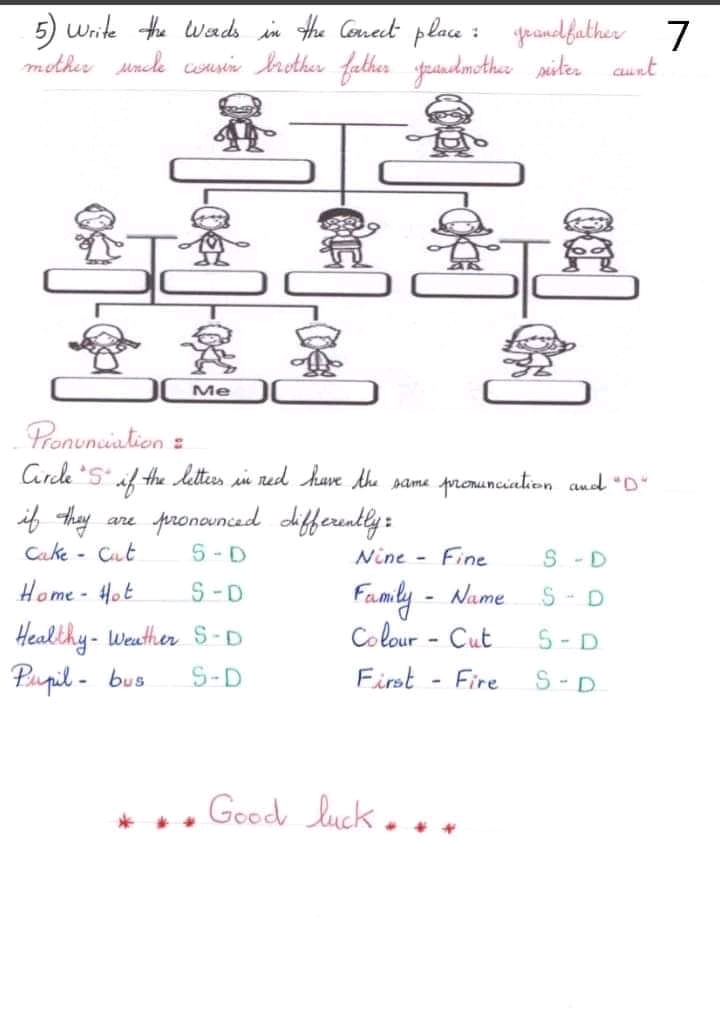 5) Write the Words in the Correct place : grandfather 7
mother uncle cousin brother father grandmother sister aunt
Me
Pronunciation :
Circle "S" if the letters in red have the same pronunciation and "D"
if they are pronounced differently :
Cake - Cut S - D Nine - Fine S - D
Home - Hot S - D Family - Name S - D
Healthy - Weather S - D Colour - Cut S - D
Pupil - bus S - D First - Fire S - D
* * * Good luck * * *